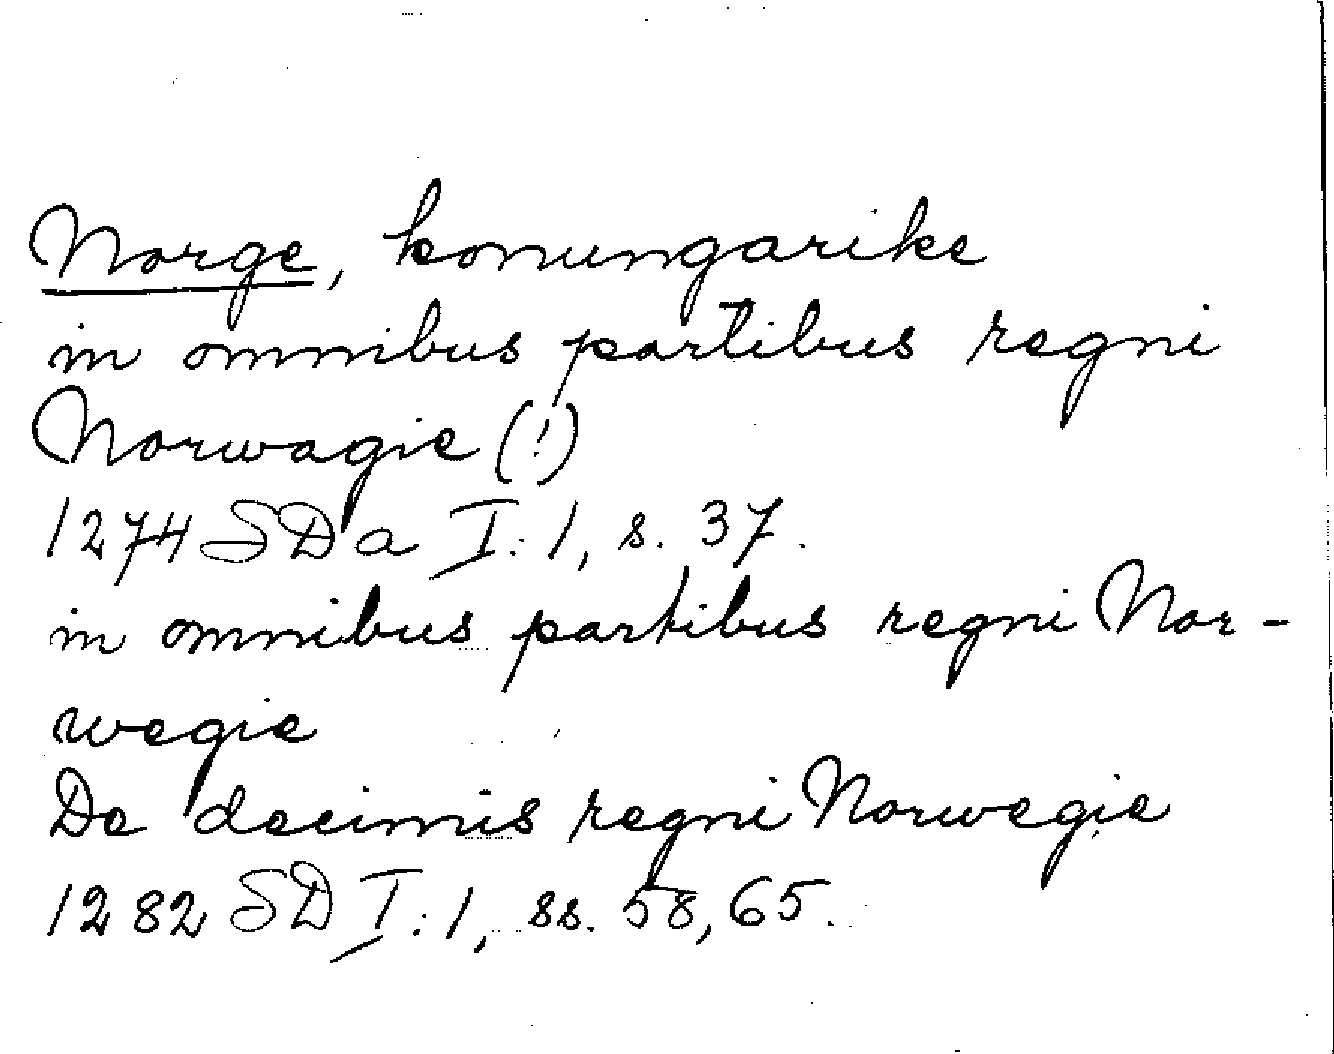 Norge, konungarike
in omnibus partibus regni
Norwagie (!)
1274 SD a I:1, s. 37.
in omnibus partibus regni Nor-
wegie
De decimis regni Norwegie
1282 SD I:1, ss. 58, 65.